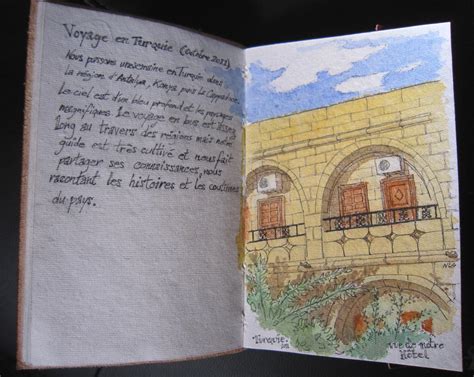 Voyage en Turquie (Octobre 2011)
Nous passons une semaine en Turquie dans
la région d'Antalya, Konya, puis la Cappadoce.
Le ciel est d'un bleu profond et les paysages
magnifiques. Le voyage en bus est assez
long au travers des régions mais notre
guide est très cultivé et nous fait
partager ses connaissances, nous
racontant les histoires et les coutumes
du pays.
NLG
Turquie.
vue de notre
hôtel